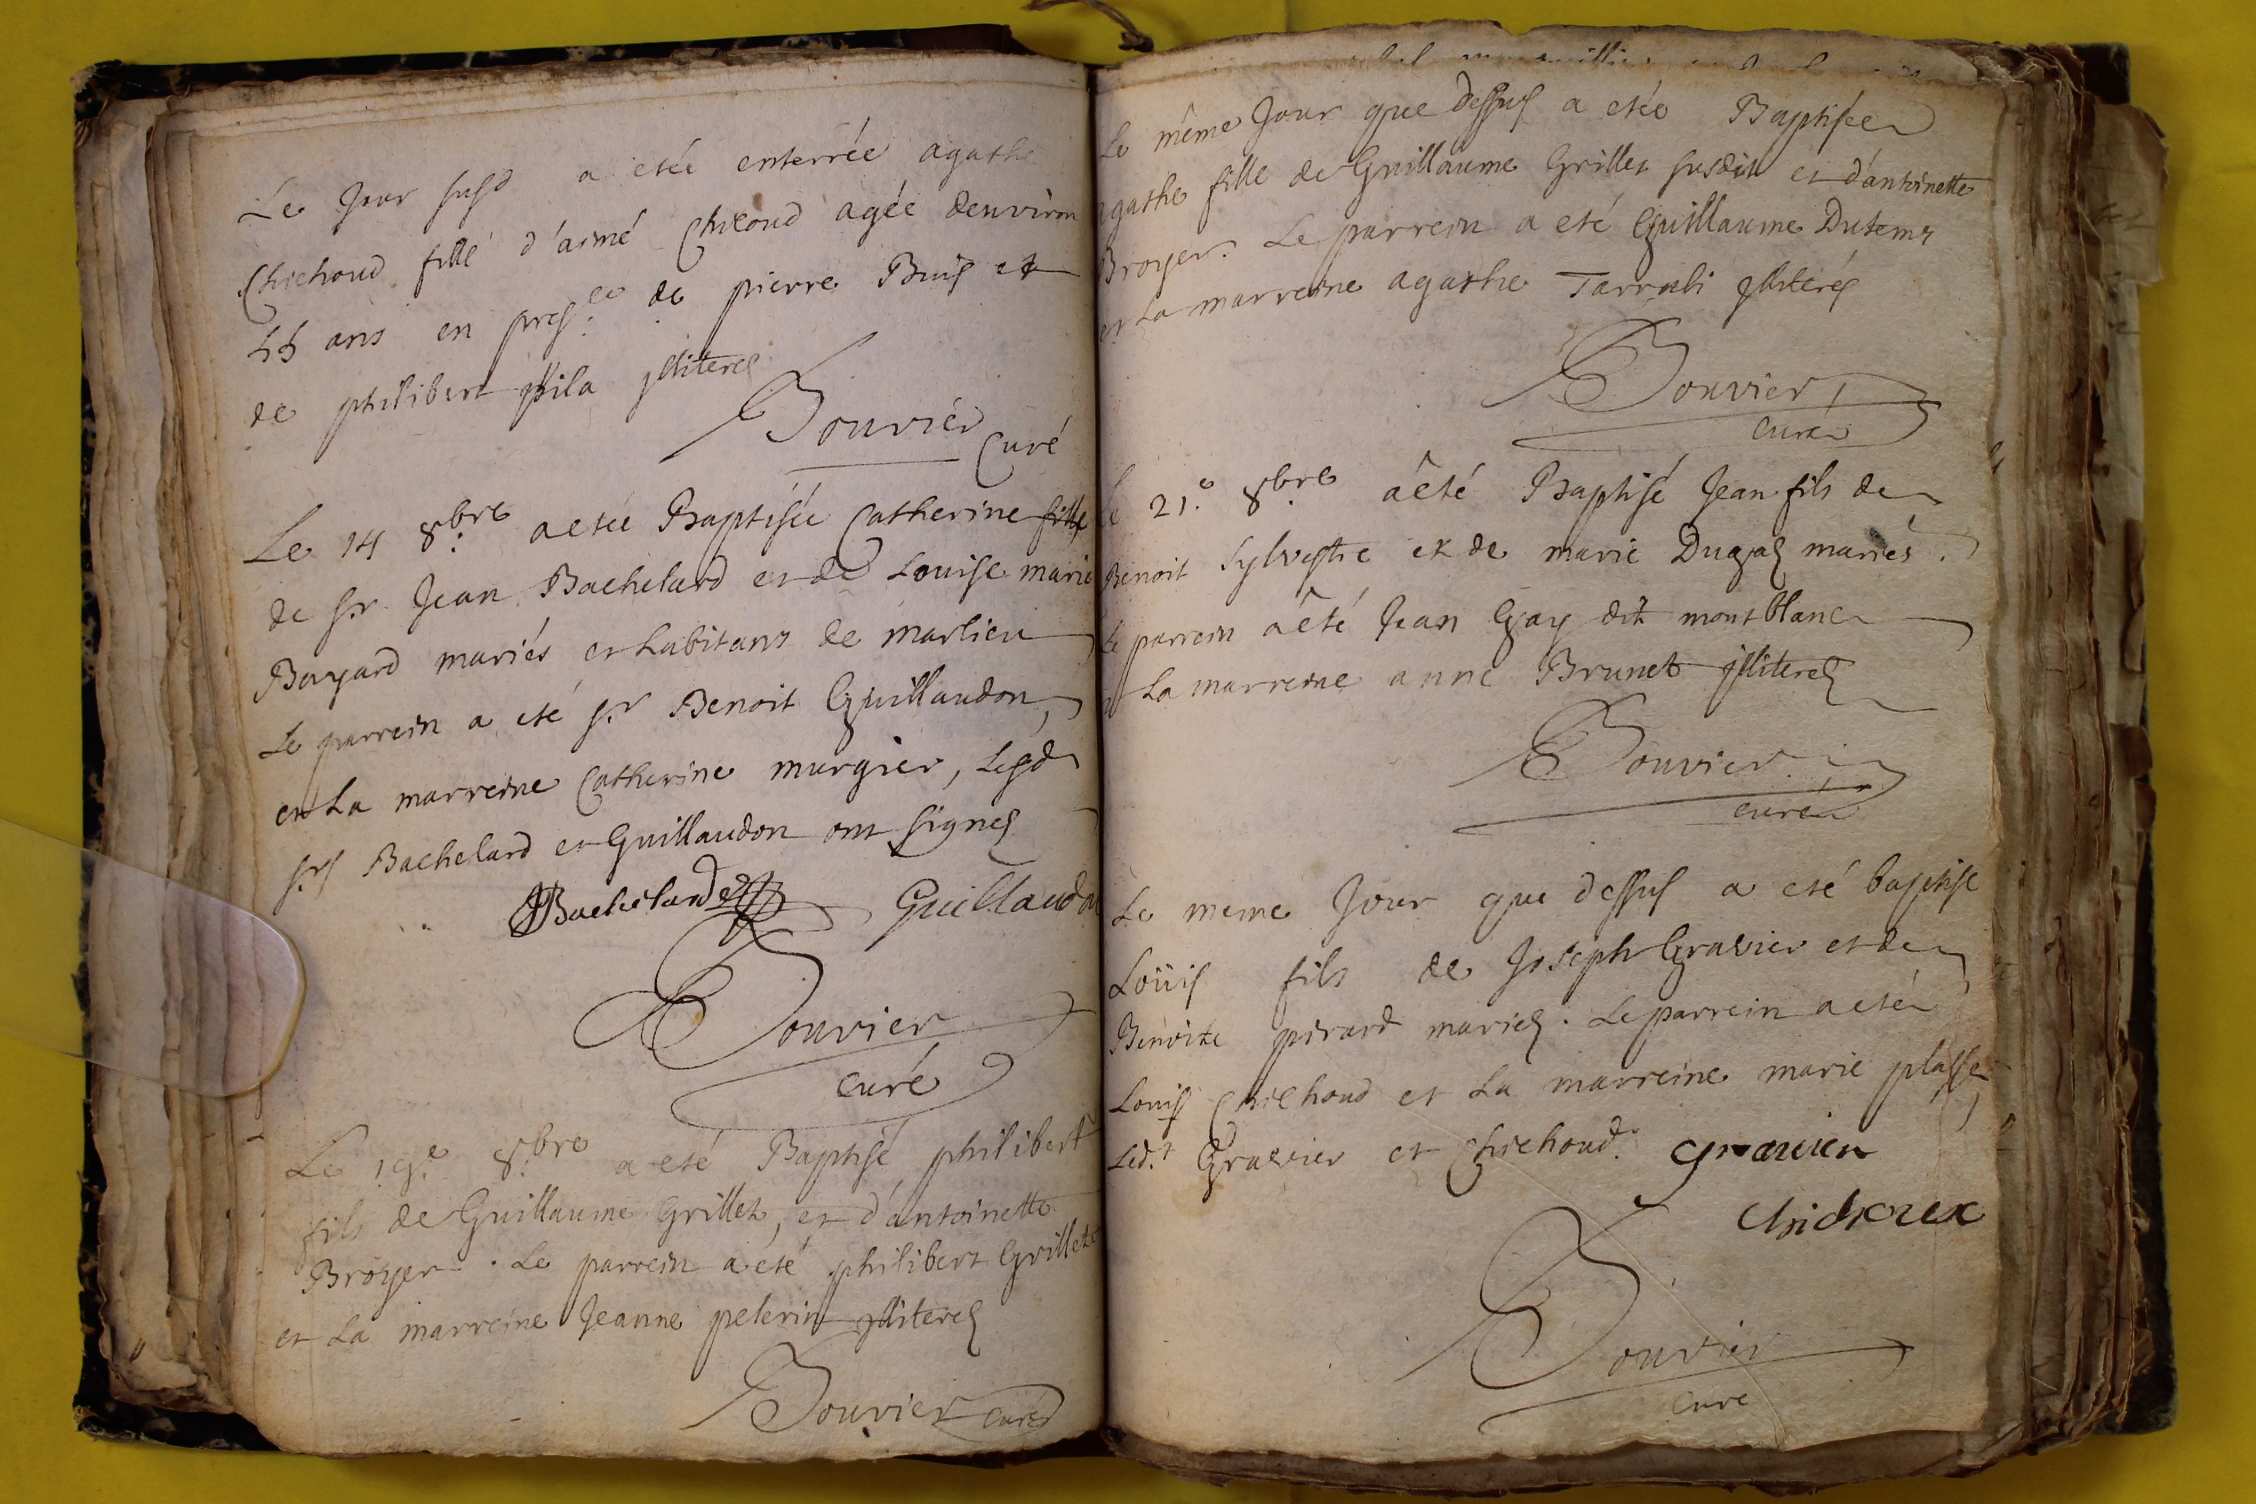 Le Jour susd a etée enterrée agathe
Chichoud fille d'aimé Chicoud agée denviron
45 ans en pres.ce de pierre Buis et
de philibert pila illiterés
Bouvier
Curé
Le 14 8.bre a etée Baptisée Catherine fille
de sr. Jean Bachelard et de Louise marie
Bayard mariés et habitans de marlieu
Le parrein a eté sr. Benoit Guillaudon,
et La marreine Catherine murgier, Lesd
srs Bachelard et Guillaudon ont signés
Bachelard Guillaudon
Bouvier
curé
Le 19.e 8.bre a eté Baptisé philibert
fils de Guillaume Grillet, et d'antoinette
Broyer. Le parrein a eté philibert Grillet
et La marreine Jeanne pelerin illiterés
Bouvier curé
Le même Jour que dessus a etée Baptisée
agathe fille de Guillaume Grillet susdit et d'antoinette
Broyer. Le parrein a eté Guillaume Dutems
et La marreine agathe illiterés
Bouvier
curé
Le 21.e 8.bre a êté Baptisé Jean fils de
Benoit Sylvestre et de marie Dugas mariés.
Le parrein a êté Jean Gay dit montblanc
et La marreine anne Brunet illiterés
Bouvier
curé
Le meme Jour que dessus a eté baptisé
Loüis fils de Joseph Gravier et de
Benoite pirard mariés. Le parrein a eté
Louis Chichoud et La marreine marie plasse
Led.t Gravier et Chichoud. gravier
Chichoux
Bouvier
curé